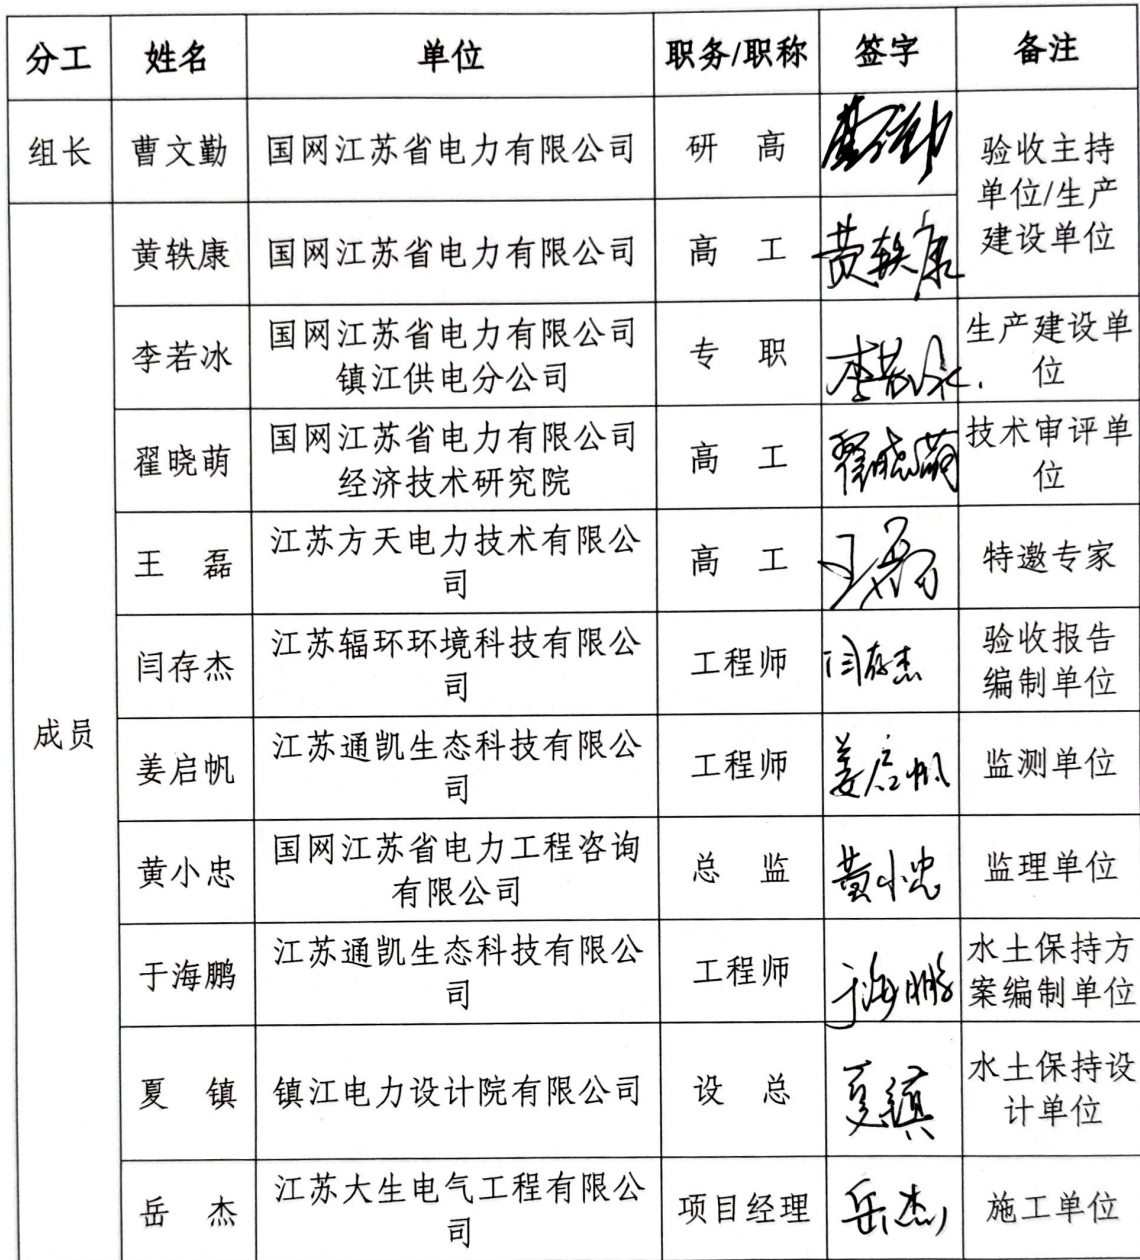 分工 姓名 单位 职务/职称 签字 备注
组长 曹文勤 国网江苏省电力有限公司 研 高 曹文勤 验收主持
单位/生产
建设单位
成员
黄轶康 国网江苏省电力有限公司 高 工 黄轶康
李若冰 国网江苏省电力有限公司
镇江供电分公司
专 职 李若冰 生产建设单
位
翟晓萌 国网江苏省电力有限公司
经济技术研究院
高 工 翟晓萌 技术审评单
位
王 磊 江苏方天电力技术有限公
司
高 工 王磊 特邀专家
闫存杰 江苏辐环环境科技有限公
司
工程师 闫存杰 验收报告
编制单位
姜启帆 江苏通凯生态科技有限公
司
工程师 姜启帆 监测单位
黄小忠 国网江苏省电力工程咨询
有限公司
总 监 黄小忠 监理单位
于海鹏 江苏通凯生态科技有限公
司
工程师 于海鹏 水土保持方
案编制单位
夏 镇 镇江电力设计院有限公司 设 总 夏镇 水土保持设
计单位
岳 杰 江苏大生电气工程有限公
司
项目经理 岳杰 施工单位